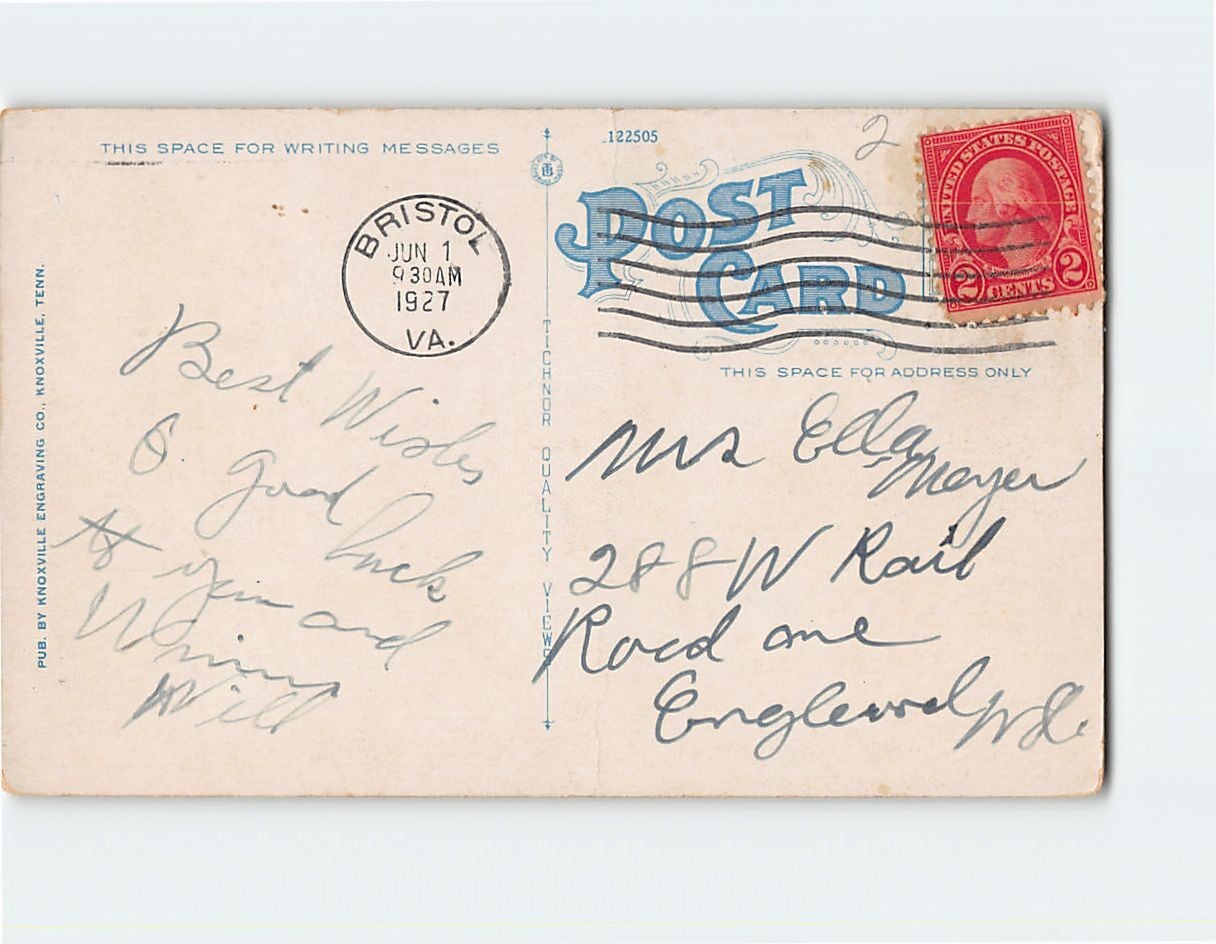 THIS SPACE FOR WRITING MESSAGES
122505
2
POST
CARD
UNITED STATES POSTAGE
2 CENTS 2
BRISTOL
JUN 1
9 30AM
1927
VA.
THIS SPACE FOR ADDRESS ONLY
PUB. BY KNOXVILLE ENGRAVING CO., KNOXVILLE, TENN.
TICHNOR QUALITY VIEWS
Best Wishes
& good luck
to you and
Will
Mrs Ella
Meyer
288 W Rail
Road ave
Englewood N.J.